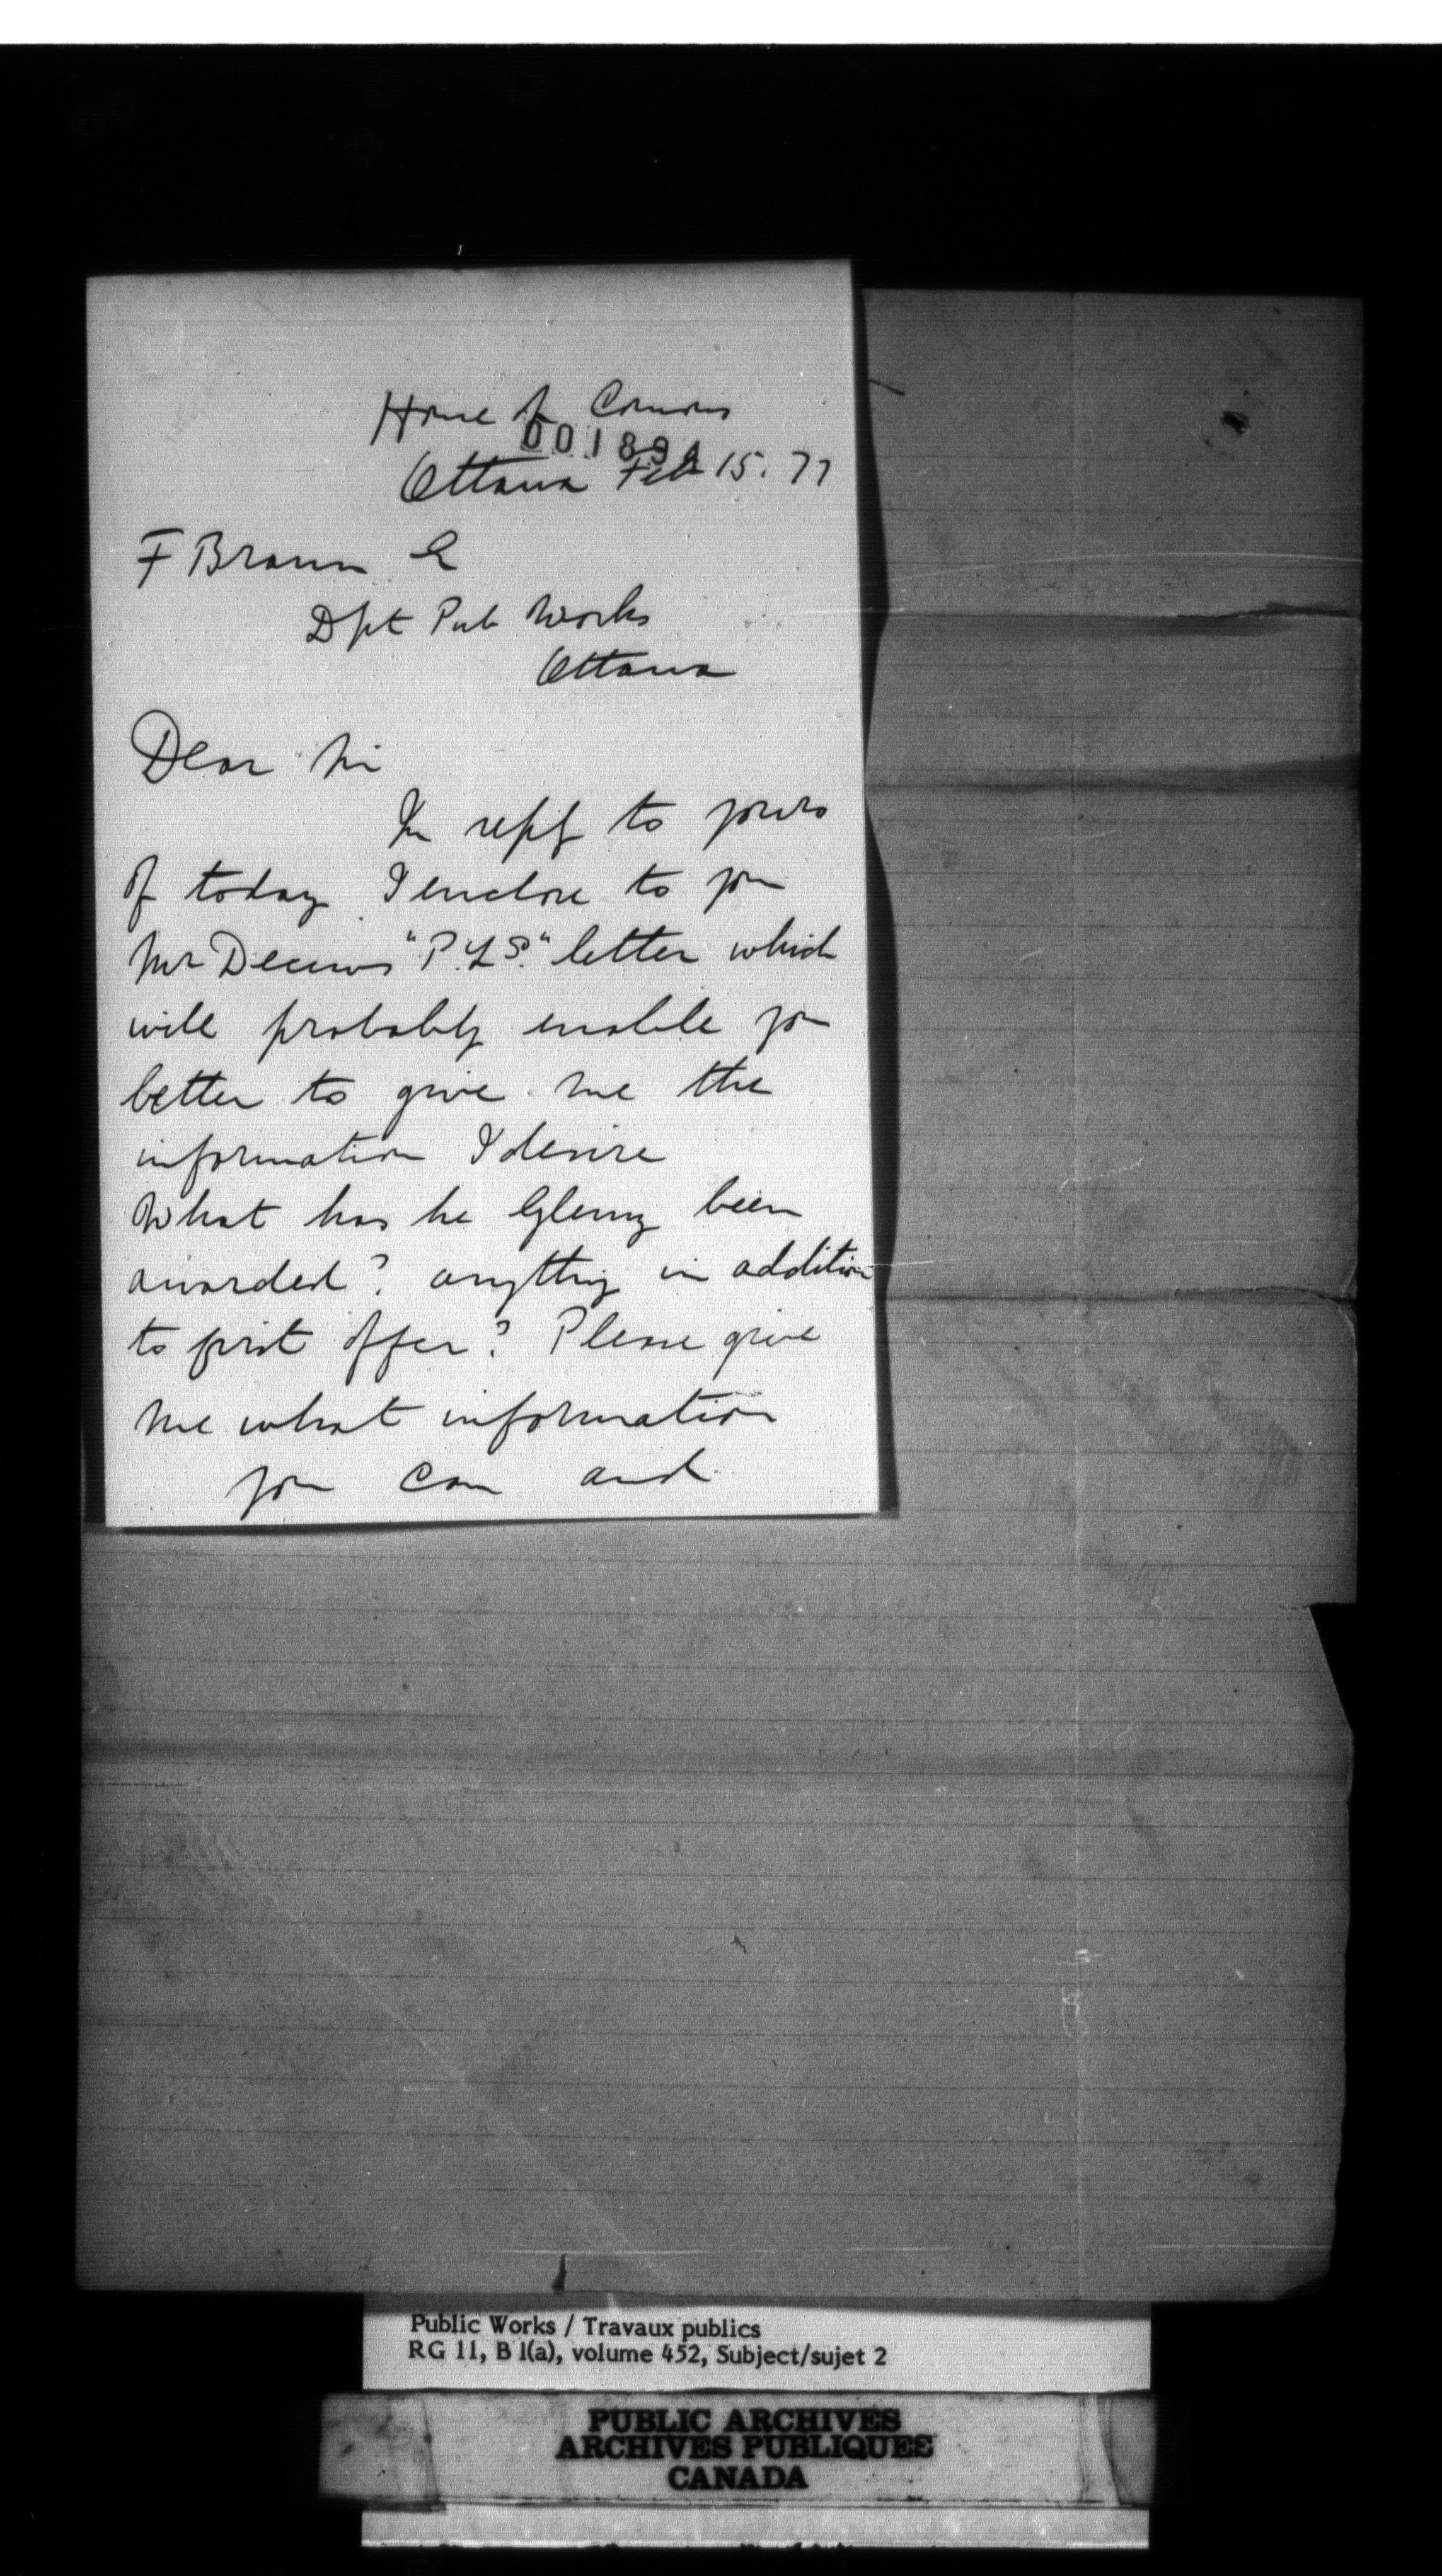 House of Commons
001894
Ottawa Feb 15. 77
F Braun
Dpt Pub Works
Ottawa
Dear Sir
In reply to yours
of today I enclose to you
Mr "P.L.S." letter which
will probably enable you
better to give me the
information I desire
What has he been
awarded? anything in addition
to first offer? Please give
me what information
you can and
Public Works / Travaux publics
RG 11, B 1(a), volume 452, Subject/sujet 2
PUBLIC ARCHIVES
ARCHIVES PUBLIQUES
CANADA